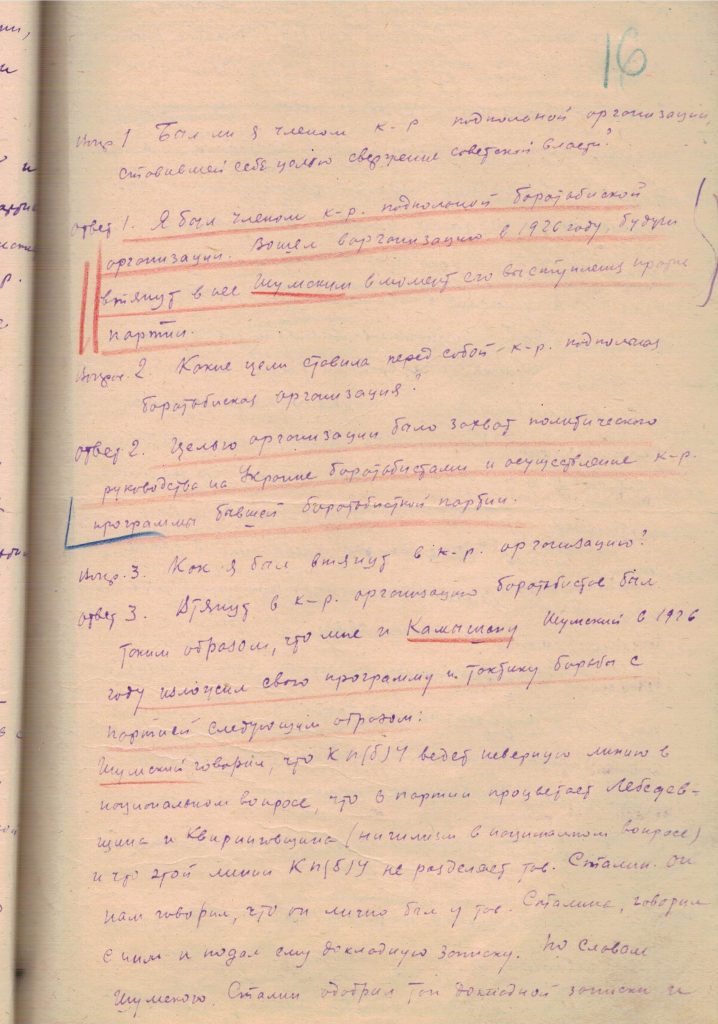 16
Вопр 1 Был ли я членом к-р подпольной организации,
ставившей себе целью свержение советской власти?
ответ 1. Я был членом к-р. подпольной боротьбиской
организации. Вошел в организацию в 1926 году, будучи
втянут в нее Шумским в момент его выступления против
партии.
Вопрос 2. Какие цели ставила перед собой к-р. подпольная
боротьбиская организация?
ответ 2. Целью организации было захват политического
руководства на Украине боротьбистами и осуществление к-р.
программы бывшей боротьбисткой партии.
Вопр. 3. Как я был втянут в к-р. организацию?
ответ 3. Втянут в к-р. организацию боротьбистов был
таким образом, что мне и Шумский в 1926
году изложил свою программу и тактику борьбы с
партией следующим образом:
Шумский говорил, что КП(б)У ведет неверную линию в
национальном вопросе, что в партии процветает Лебедев-
щина и Квиринговщина (нигилизм в национальном вопросе)
и что этой линии КП(б)У не разделяет тов. Сталин. Он
нам говорил, что он лично был у тов. Сталина, говорил
с ним и подал ему докладную записку. По словам
Шумского, Сталин одобрил тон докладной записки и